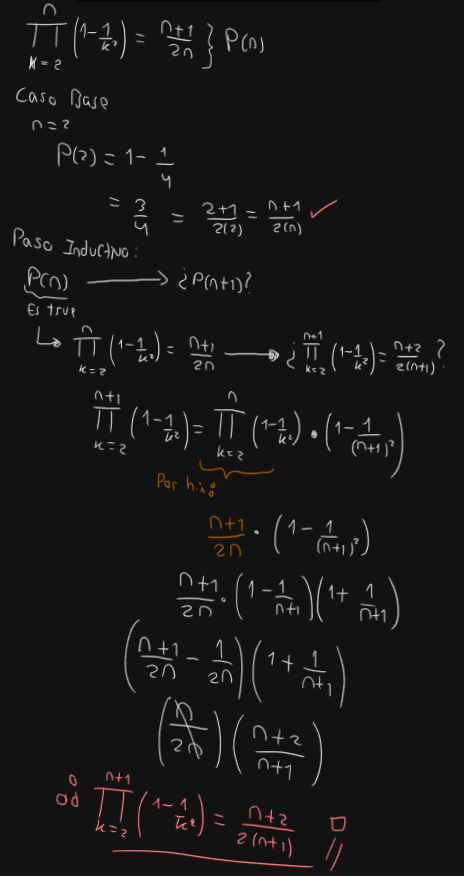 ∏_{k=2}^{n} (1 - 1/k²) = (n+1)/(2n) } P(n)
Caso Base
n=2
P(2) = 1 - 1/4
= 3/4 = (2+1)/(2(2)) = (n+1)/(2(n)) ✓
Paso Inductivo:
P(n) ⟶ ¿P(n+1)?
Es true
↳ ∏_{k=2}^{n} (1 - 1/k²) = (n+1)/(2n) ⟶ ¿∏_{k=2}^{n+1} (1 - 1/k²) = (n+2)/(2(n+1))?
∏_{k=2}^{n+1} (1 - 1/k²) = ∏_{k=2}^{n} (1 - 1/k²) • (1 - 1/(n+1)²)
Por h.i:
(n+1)/(2n) · (1 - 1/(n+1)²)
(n+1)/(2n) · (1 - 1/(n+1)) (1 + 1/(n+1))
((n+1)/(2n) - 1/(2n)) (1 + 1/(n+1))
(n/(2n)) ((n+2)/(n+1))
∴ ∏_{k=2}^{n+1} (1 - 1/k²) = (n+2)/(2(n+1)) □ //